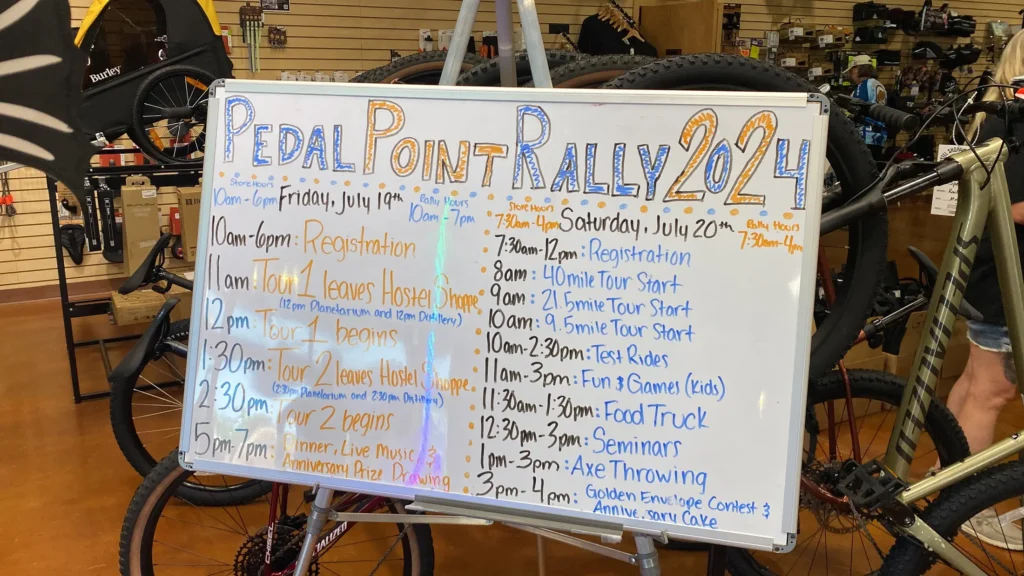 Burley
PEDAL POINT RALLY 2024
Store Hours
10am-6pm
Friday, July 19th
Rally Hours
10am-7pm
10am-6pm: Registration
11am Tour 1 leaves Hostel Shoppe
(12pm Planetarium and 12pm Distillery)
12pm: Tour 1 begins
1:30pm: Tour 2 leaves Hostel Shoppe
(2:30pm Planetarium and 2:30pm Distillery)
2:30pm Tour 2 begins
5pm-7pm: Dinner, Live Music &
Anniversary Prize Drawing
Store Hours
7:30am-4pm
Saturday, July 20th
Rally Hours
7:30am-4pm
7:30am-12pm: Registration
8am: 40mile Tour Start
9am: 21.5mile Tour Start
10am: 9.5mile Tour Start
10am-2:30pm: Test Rides
11am-3pm: Fun & Games (Kids)
11:30am-1:30pm: Food Truck
12:30pm-3pm: Seminars
1pm-3pm: Axe Throwing
3pm-4pm: Golden Envelope Contest &
Anniversary Cake
SPECIALIZED